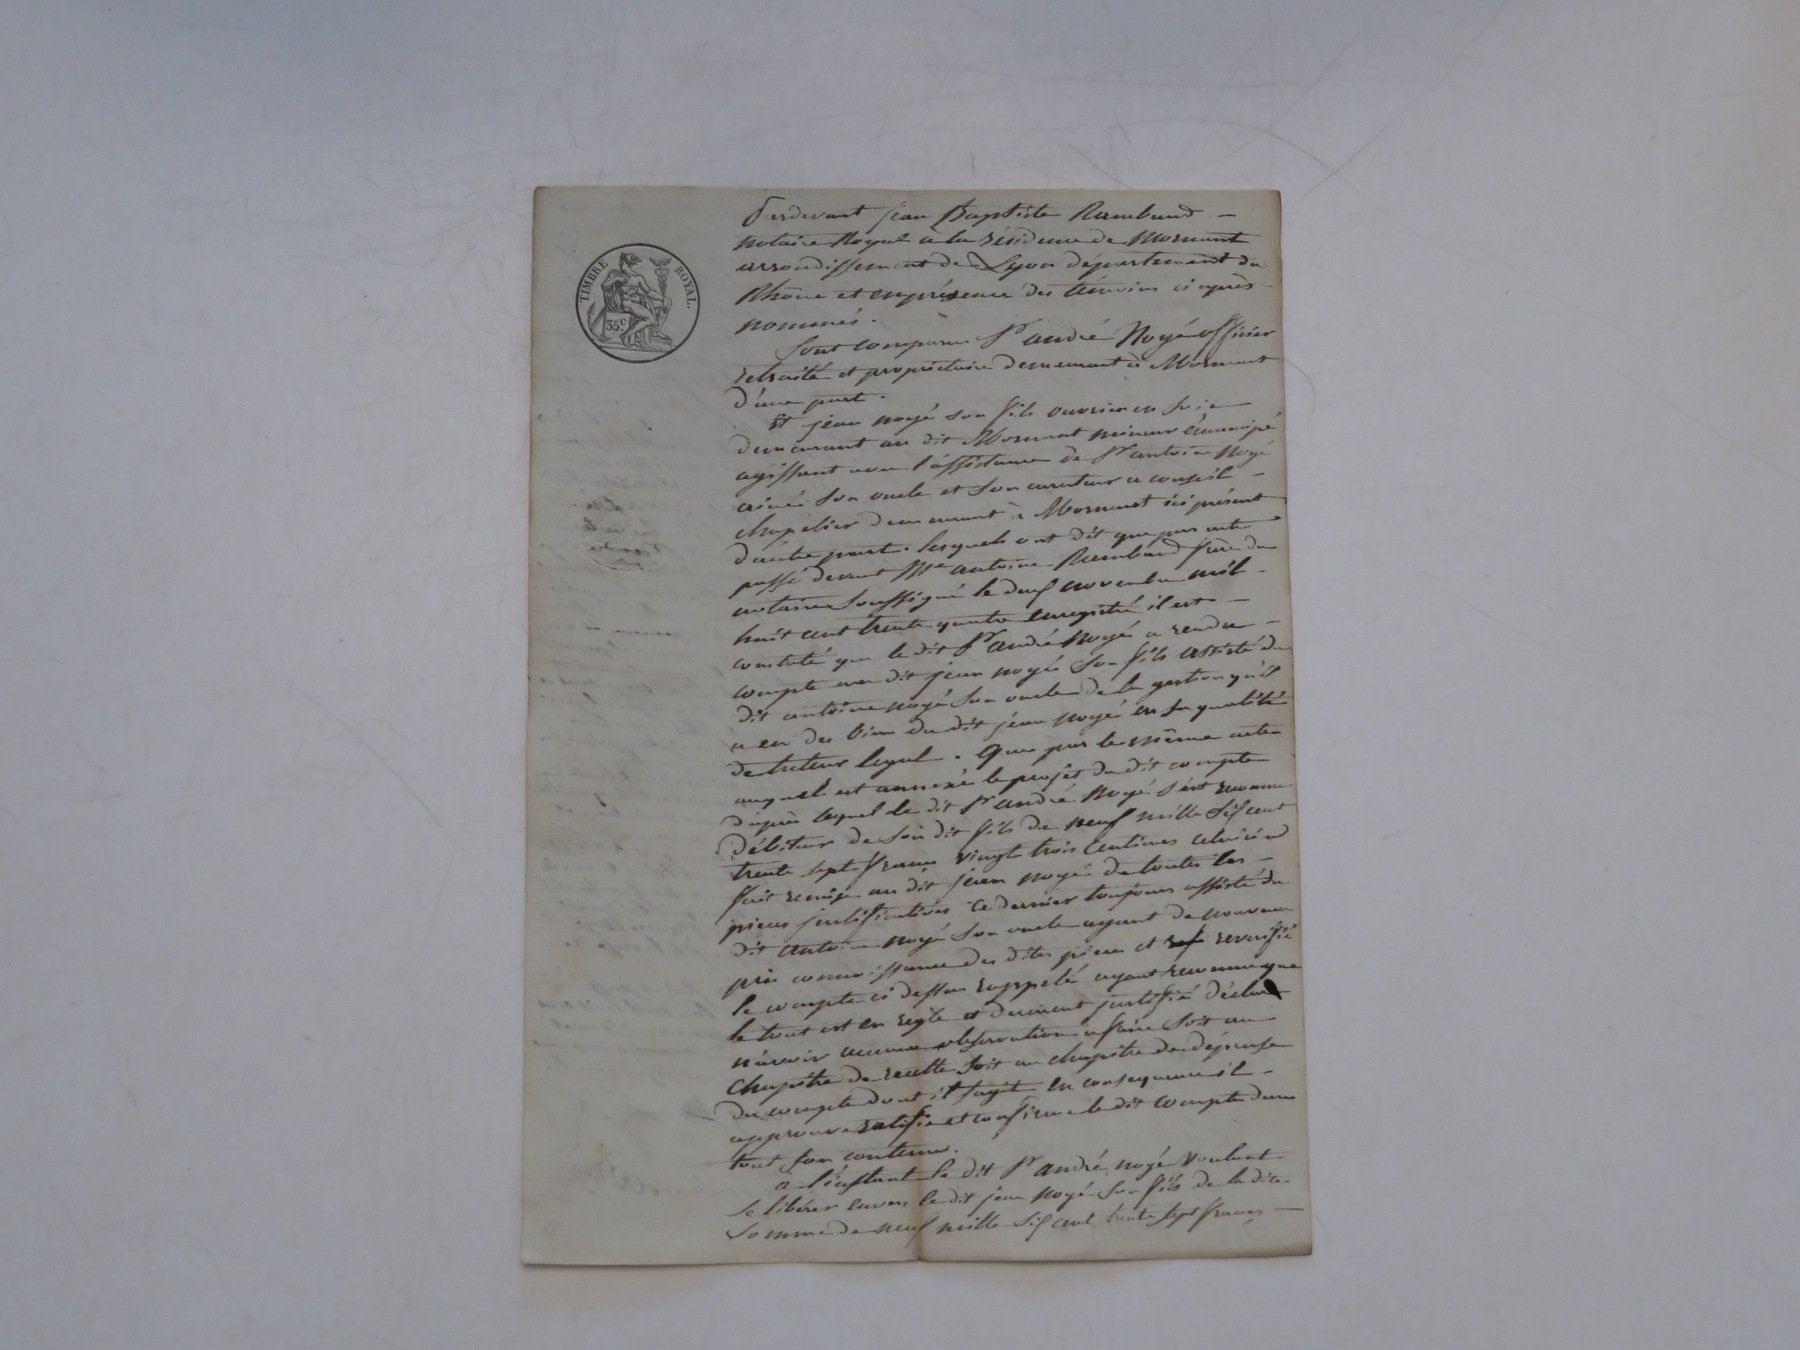 TIMBRE ROYAL.
35c
Pardevant jean Baptiste Rambaud –
notaire Royal à la résidence de Mornant
arrondissement de Lyon département du
Rhône et en présence des témoins ci après
nommés.
Sont comparus Sr andré Noyé officier
retraité et propriétaire demeurant à Mornant
d'une part.
Et jean noyé son fils ouvrier en soie
demeurant au dit Mornant mineur émancipé
agissant avec l'assistance de Sr antoine Noyé
ainé son oncle et son curateur a conseil –
chapelier demeurant à Mornant ici présent
d'autre part. lesquels ont dit que par acte
passé devant Me antoine Rambaud père du
notaire soussigné le neuf novembre mil –
huit cent trente quatre enregistré il est –
constaté que le dit Sr andré Noyé a rendu –
compte au dit jean noyé son fils assisté du
dit antoine noyé son oncle de la gestion qu'il
a eu des biens du dit jean noyé en sa qualité
de tuteur legal. Que par le même acte
auquel est annexé le projet du dit compte
d'après lequel le dit Sr andré Noyé s'est reconnu
débiteur de son dit fils de neuf mille six cent
trente sept francs vingt trois centimes celui ci a
fait remise au dit jean noyé de toutes les –
pieces justificatives ce dernier toujours assisté du
dit antoine noyé son oncle ayant de nouveau
pris connoissance des dites pieces et reverifié
le compte ci dessus rappelé ayant reconnu que
le tout est en regle et dument justifié déclare
n'avoir aucune observation a faire soit au
chapitre de recette soit au chapitre de dépense
du compte dont il sagit en consequence il –
approuve ratifie et confirme le dit compte dans
tout son contenu.
a l'instant le dit Sr andré noyé voulant
se libérer envers le dit jean noyé son fils de la dite
somme de neuf mille six cent trente sept francs –